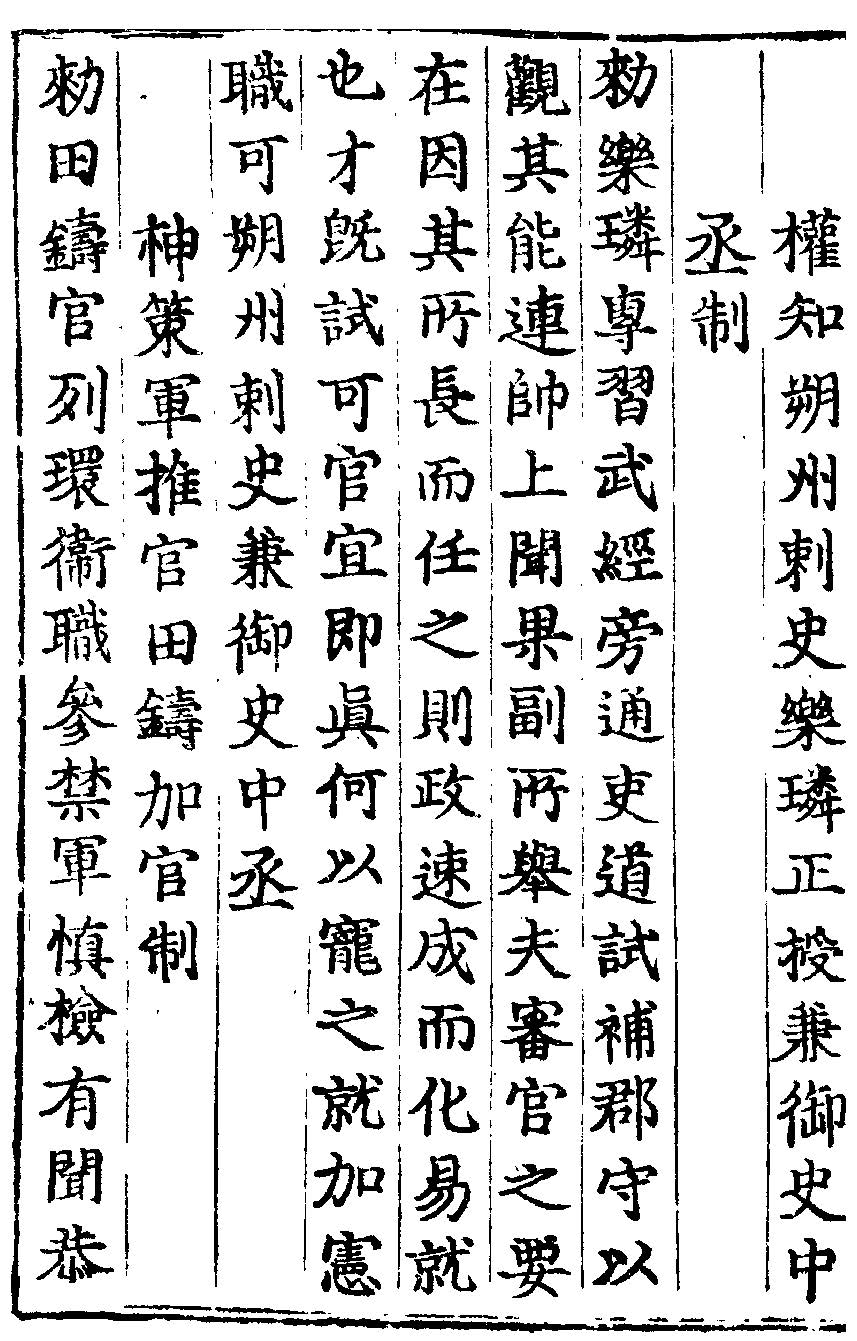 權知朔州刺史樂璘正授兼御史中
丞制
勑樂璘專習武經旁通吏道試補郡守以
觀其能連帥上聞果副所舉夫審官之要
在因其所長而任之則政速成而化易就
也才旣試可官宜即眞何以寵之就加憲
職可朔州刺史兼御史中丞
神策軍推官田鑄加官制
勑田鑄官列環衛職參禁軍慎檢有聞恭